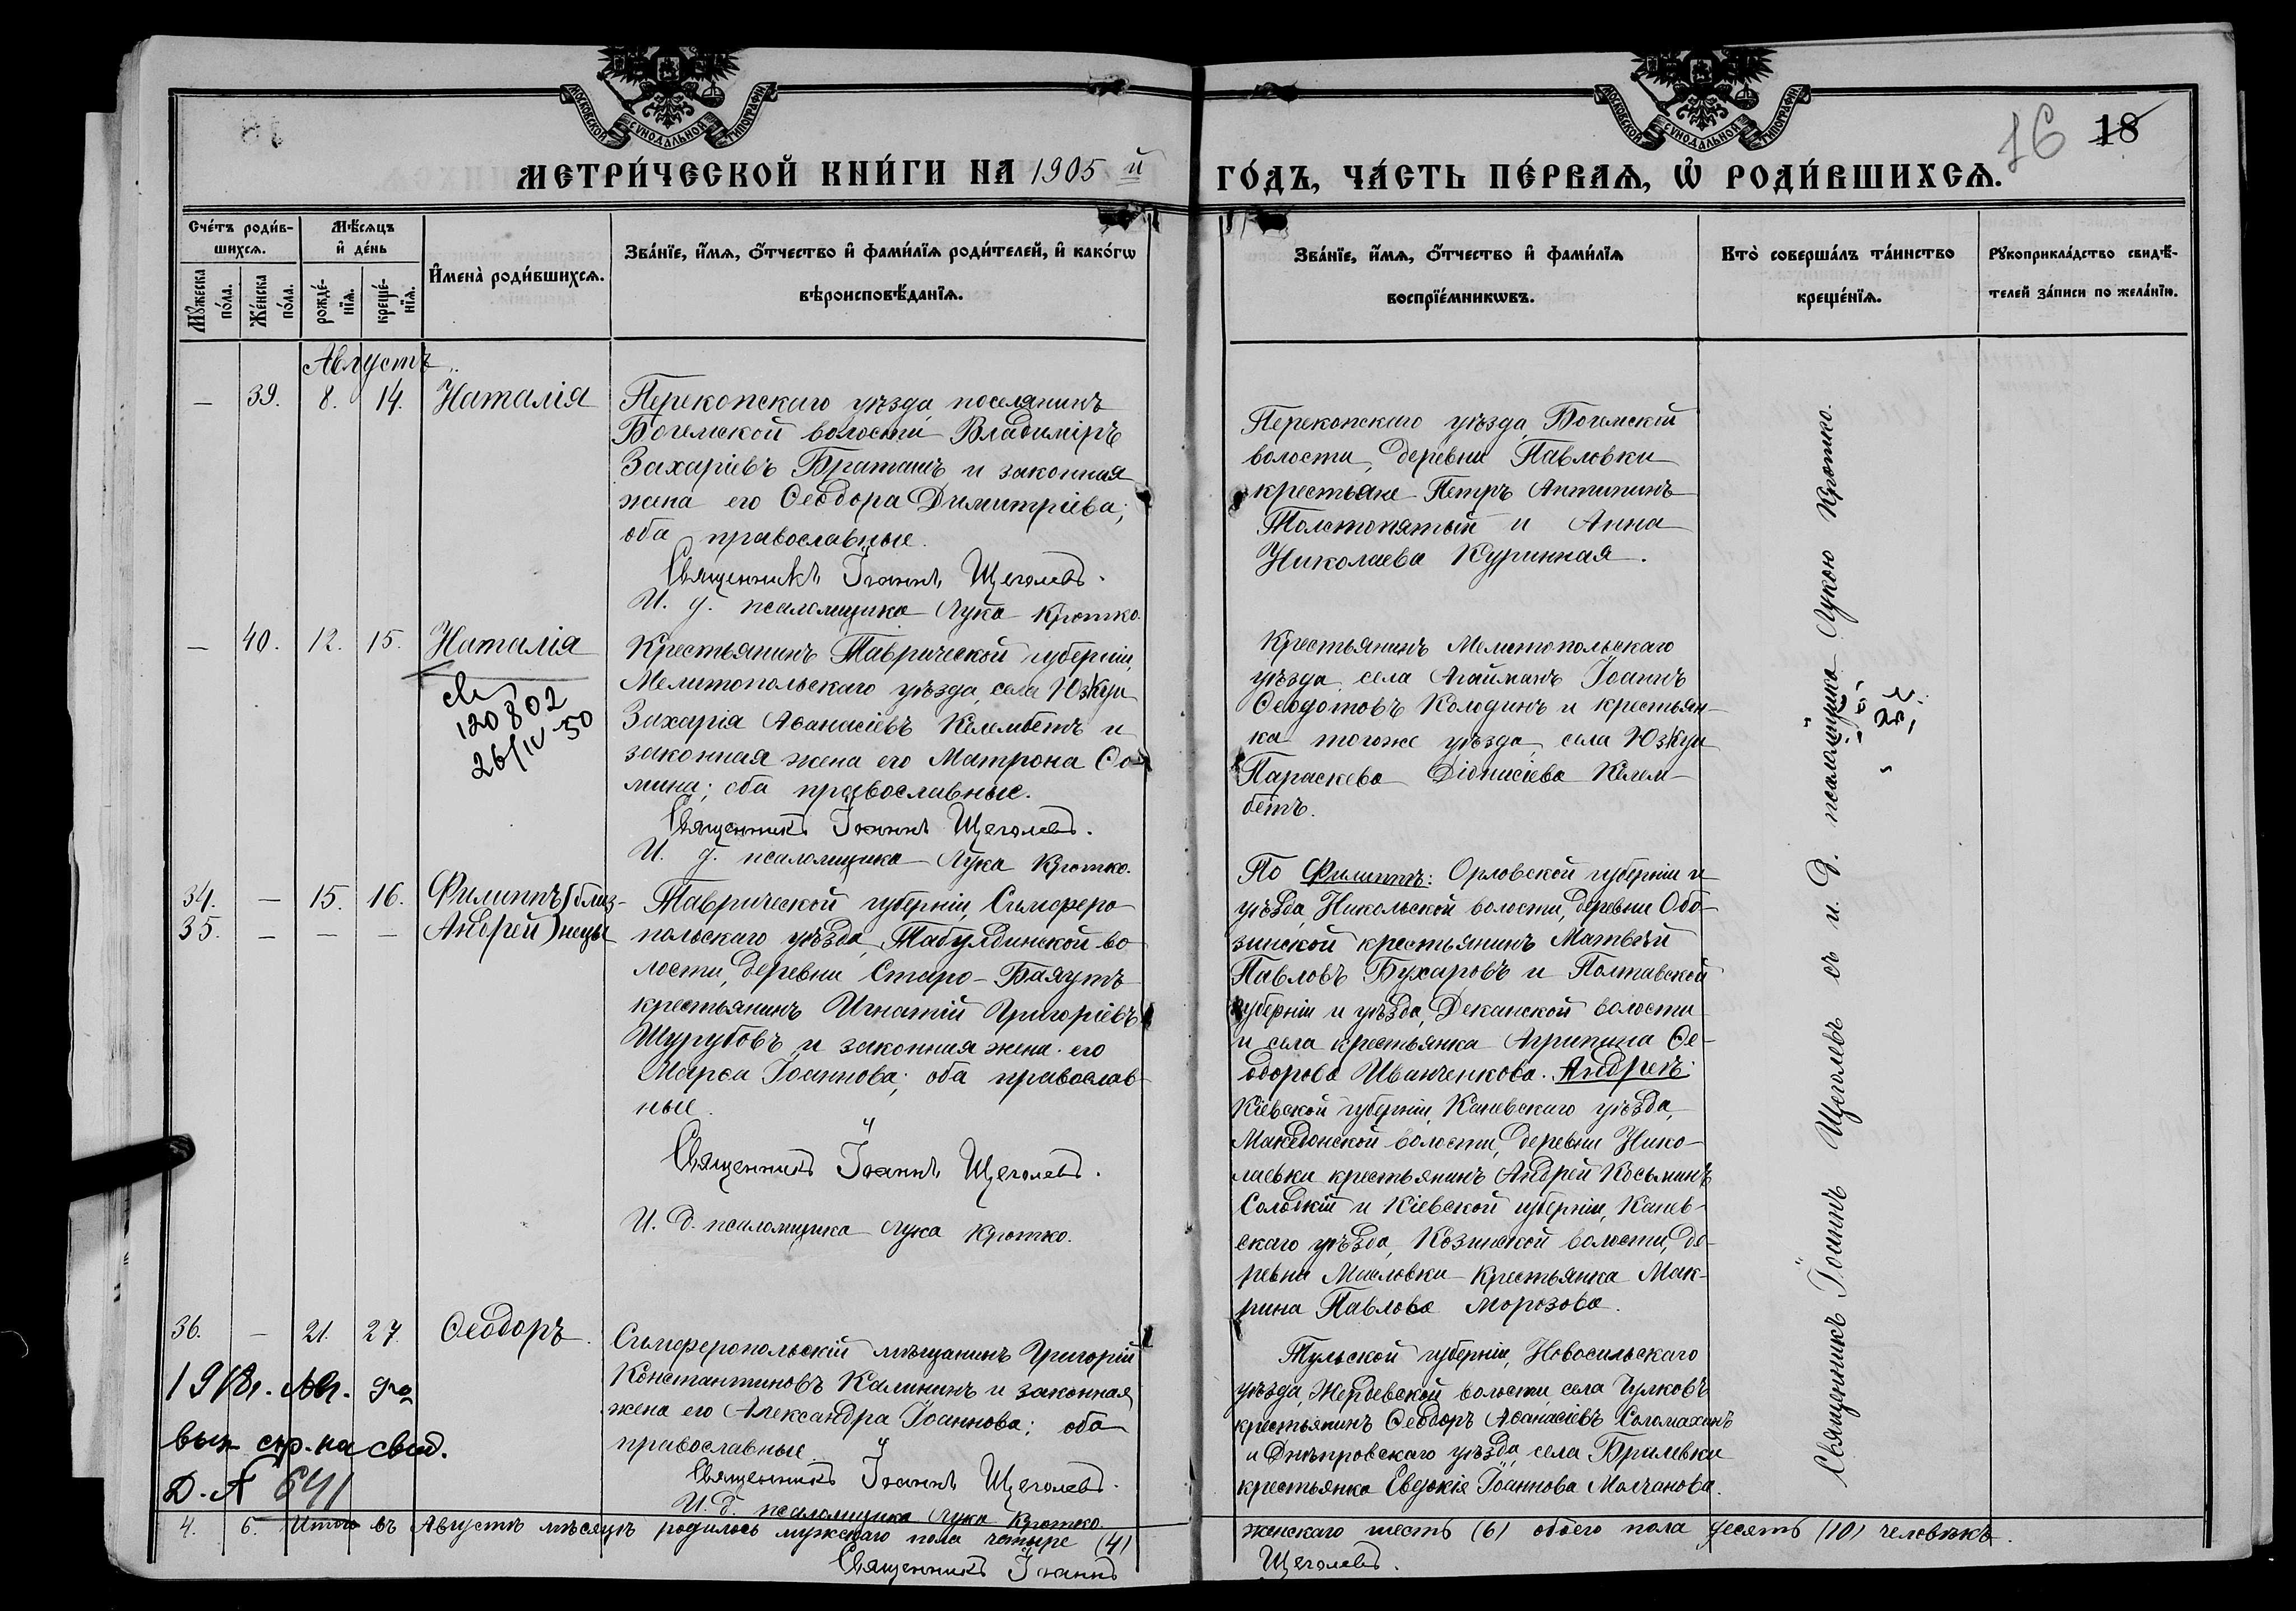 МОСКОВСКОЙ СѴНОДАЛЬНОЙ ТИПОГРАФІИ
МОСКОВСКОЙ СѴНОДАЛЬНОЙ ТИПОГРАФІИ
16 18
МЕТРИ́ЧЕСКОЙ КНИ́ГИ НА 1905 й ГО́ДЪ, ЧА́СТЬ ПЕ́РВАѦ, Ѡ҆ РОДИ́ВШИХСѦ.
Сче́тъ роди́в-
шихсѧ.
Мꙋ́жеска
по́ла.
Же́нска
по́ла.
Мѣ́сѧцъ
и҆ де́нь
рожде́-
нїѧ.
креще́-
нїѧ.
И҆мена̀ роди́вшихсѧ.
Зва́нїе, и҆́мѧ, ѻ҆́тчество и҆ фами́лїѧ роди́телей, и҆ како́гѡ
вѣроисповѣ́данїѧ.
Зва́нїе, и҆́мѧ, ѻ҆́тчество и҆ фами́лїѧ
воспрїе́мникѡвъ.
Кто̀ соверша́лъ та́инство
креще́нїѧ.
Рꙋкоприкла́дство свидѣ́-
телей за́писи по жела́нїю.
Августъ
— 39. 8. 14. Наталія
Перекопскаго уѣзда поселянинъ
Богемской волости Владиміръ
Захаріевъ Браташъ и законная
жена его Ѳеодора Димитріева;
оба православные.
Священникъ Іоаннъ Щеголевъ.
И. д. псаломщика Лука Кротко.
Перекопскаго уѣзда Богемской
волости, деревни Павловки
крестьяне Петръ Антипинъ
Толстопятый и Анна
Николаева Куринная.
— 40. 12. 15. Наталія
120802
26/IV 50
Крестьянинъ Таврической губерніи,
Мелитопольскаго уѣзда, села Юзкуи
Захарія Аѳанасіевъ Келембетъ и
законная жена его Матрона Ѳо-
мина; оба православные.
Священникъ Іоаннъ Щеголевъ.
И. д. псаломщика Лука Кротко.
Крестьянинъ Мелитопольскаго
уѣзда села Агайманъ Іоаннъ
Ѳеодотовъ Колодинъ и крестьян-
ка тогоже уѣзда, села Юзкуи
Параскева Діонисіева Келем-
бетъ.
34. — 15. 16. Филиппъ (близ-
35. — — — Андрей) нецы
Таврической губерніи, Симферо-
польскаго уѣзда, Табулдинской во-
лости, деревни Старо-Баяутъ
крестьянинъ Игнатій Григоріевъ
Шурубовъ и законная жена его
Марѳа Іоаннова; оба православ-
ные.
Священникъ Іоаннъ Щеголевъ.
И. д. псаломщика Лука Кротко.
По Филиппѣ: Орловской губерніи и
уѣзда, Никольской волости, деревни Обо-
зинской крестьянинъ Матвѣй
Павловъ Бухаровъ и Полтавской
губерніи и уѣзда, Деканской волости
и села крестьянка Агрипина Ѳе-
одорова Иванченкова. Андреѣ:
Кіевской губерніи, Каневскаго уѣзда,
Македонской волости, деревни Нико-
лаевки крестьянинъ Андрей Косьминъ
Солодкій и Кіевской губерніи, Канев-
скаго уѣзда, Козинской волости, де-
ревни Масловки крестьянка Мак-
рина Павлова Морозова.
36. — 21. 27. Ѳеодоръ.
Симферопольскій мѣщанинъ Григорій
Константиновъ Калининъ и законная
жена его Александра Іоаннова; оба
православные.
Священникъ Іоаннъ Щеголевъ.
И. д. псаломщика Лука Кротко.
Тульской губерніи, Новосильскаго
уѣзда, Жердевской волости, села Гулковъ
крестьянинъ Ѳеодоръ Аѳанасіевъ Соломахинъ
и Днѣпровскаго уѣзда, села Брилевки
крестьянка Евдокія Іоаннова Молчанова.
стр. на свид.
641
Священникъ Іоаннъ Щеголевъ съ и. д. псаломщика Лукою Кротко.
4. 6. Итого въ Августѣ мѣсяцѣ родилось мужскаго пола четыре (4) женскаго шесть (6) обоего пола десять (10) человѣкъ.
Священникъ Іоаннъ Щеголевъ.